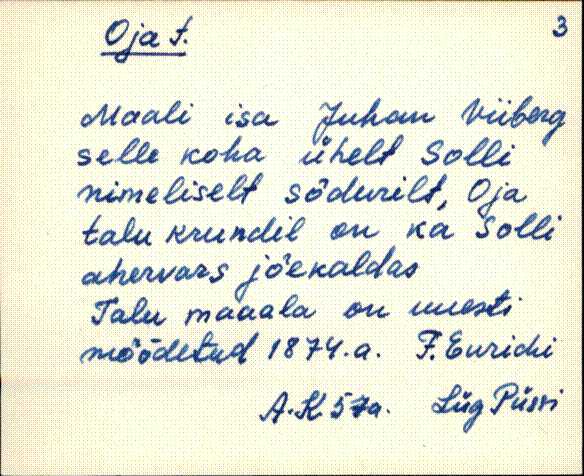 Oja t.
3
Maali isa Juhan Viiberg
selle koha ühelt Solli
nimeliselt sõdurilt, Oja
talu krundil on ka Solli
ahervars jõekaldas
Talu maaala on uuesti
mõõdetud 1874.a. F. Eurichi
A.K 57a. Lüg Püssi